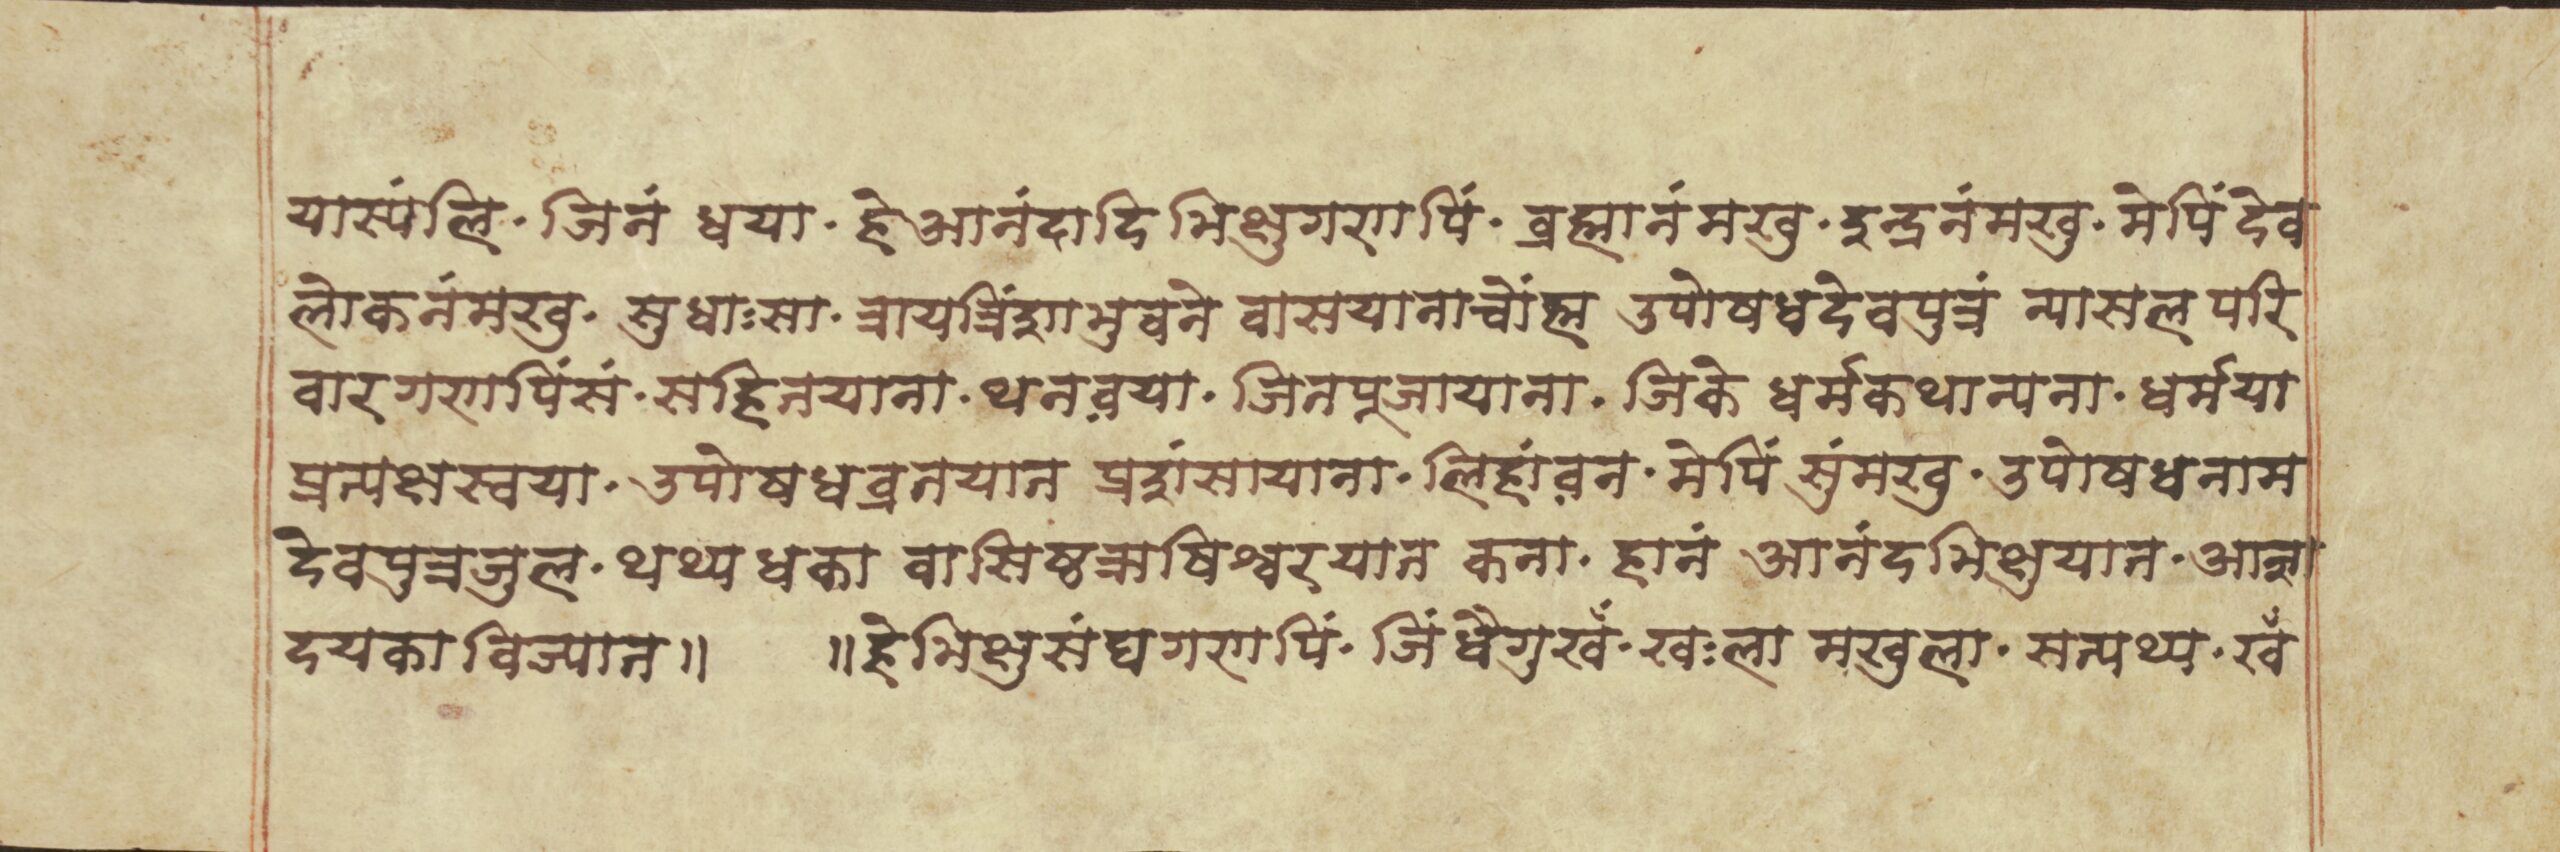 यास्पंलि· जिनं धया· हे आनंदादि भिक्षुगणपिं· ब्रह्मानंमखु· इन्द्रनंमखु· मेपिंदेव
लोकनंमखु· सुधाःसा· त्रायत्रिंश भुवने वासयानाच्वोंह्म उपोषधदेवपुत्रं त्यासलपरि
वारगणपिंसं· सहितयाना· थनव़या· जिनपूजायाना· जिके धर्मकथान्यना· धर्मया
प्रत्यक्षस्वया· उपोषधव्रतयात प्रशंसायाना· लिहांव़न· मेपिं सुंमखु· उपोषधनाम
देवपुत्रजुल· थथ्यधका वासिष्ठऋषिश्वरयात कना· हानं आनंदभिक्षुयात· आज्ञा
दयका विज्यात॥ ॥हे भिक्षुसंघगणपिं· जिं धैगुखँ· खःला मखुला· सत्यथ्य· खँ